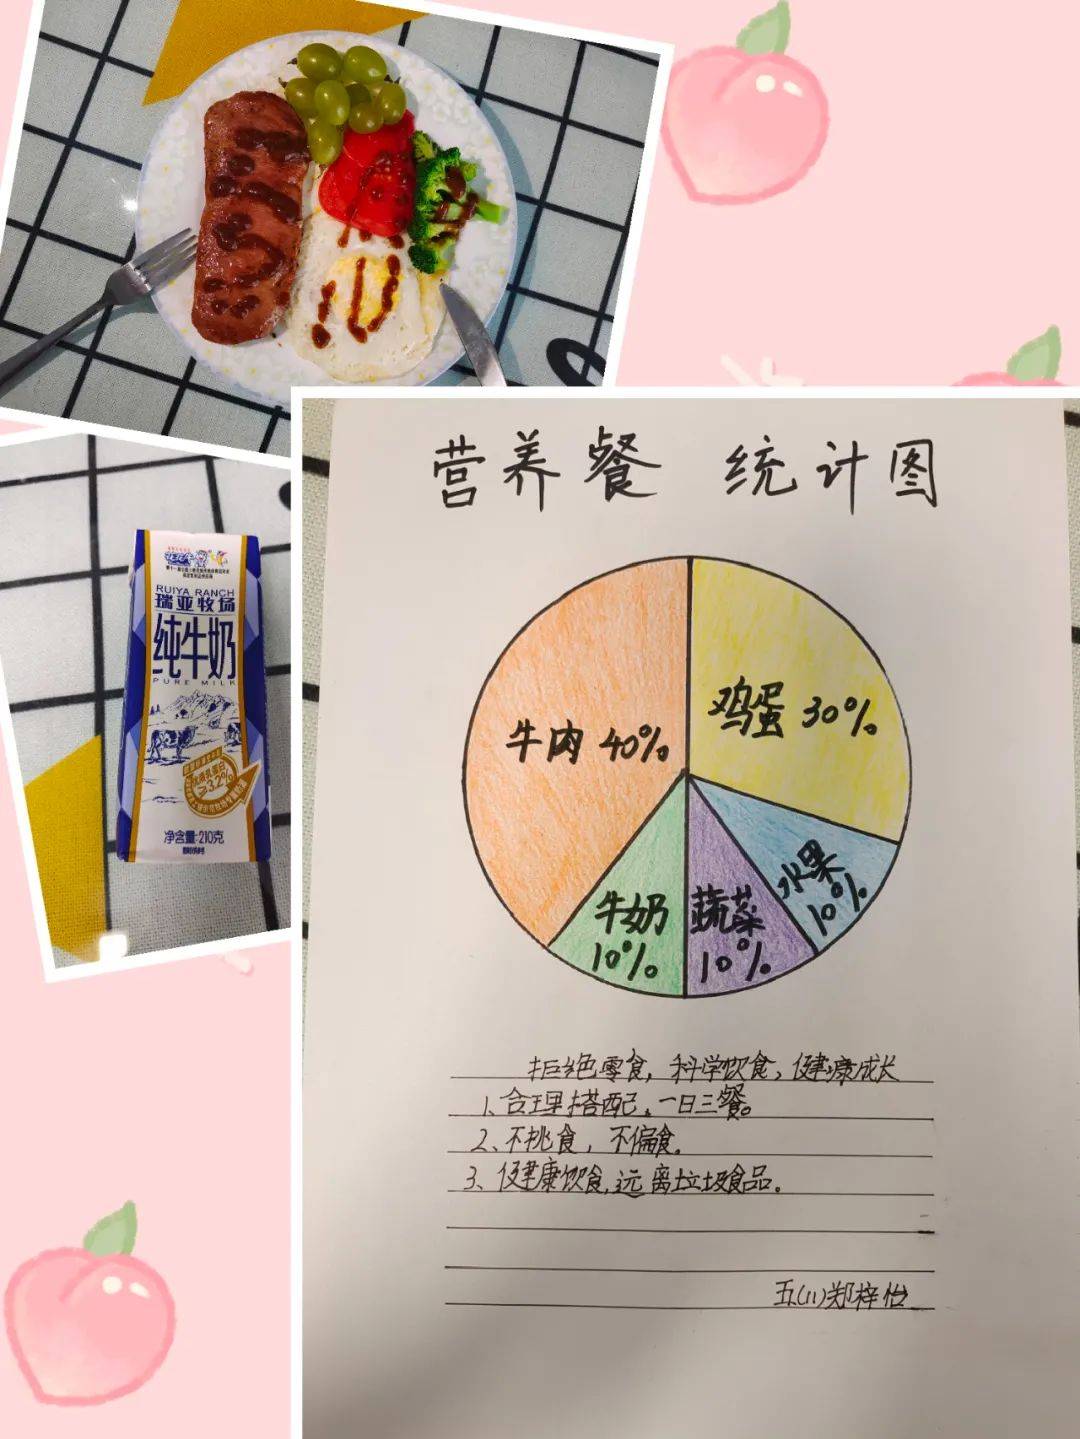 RUIYA RANCH
瑞亚牧场
纯牛奶
PURE MILK
≥3.2%
净含量:210克
营养餐 统计图
牛肉 40%
鸡蛋 30%
水果
10%
牛奶
10%
蔬菜
10%
拒绝零食，科学饮食，健康成长
1、合理搭配。一日三餐。
2、不挑食，不偏食。
3、健康饮食，远离垃圾食品。
五(11)郑梓怡